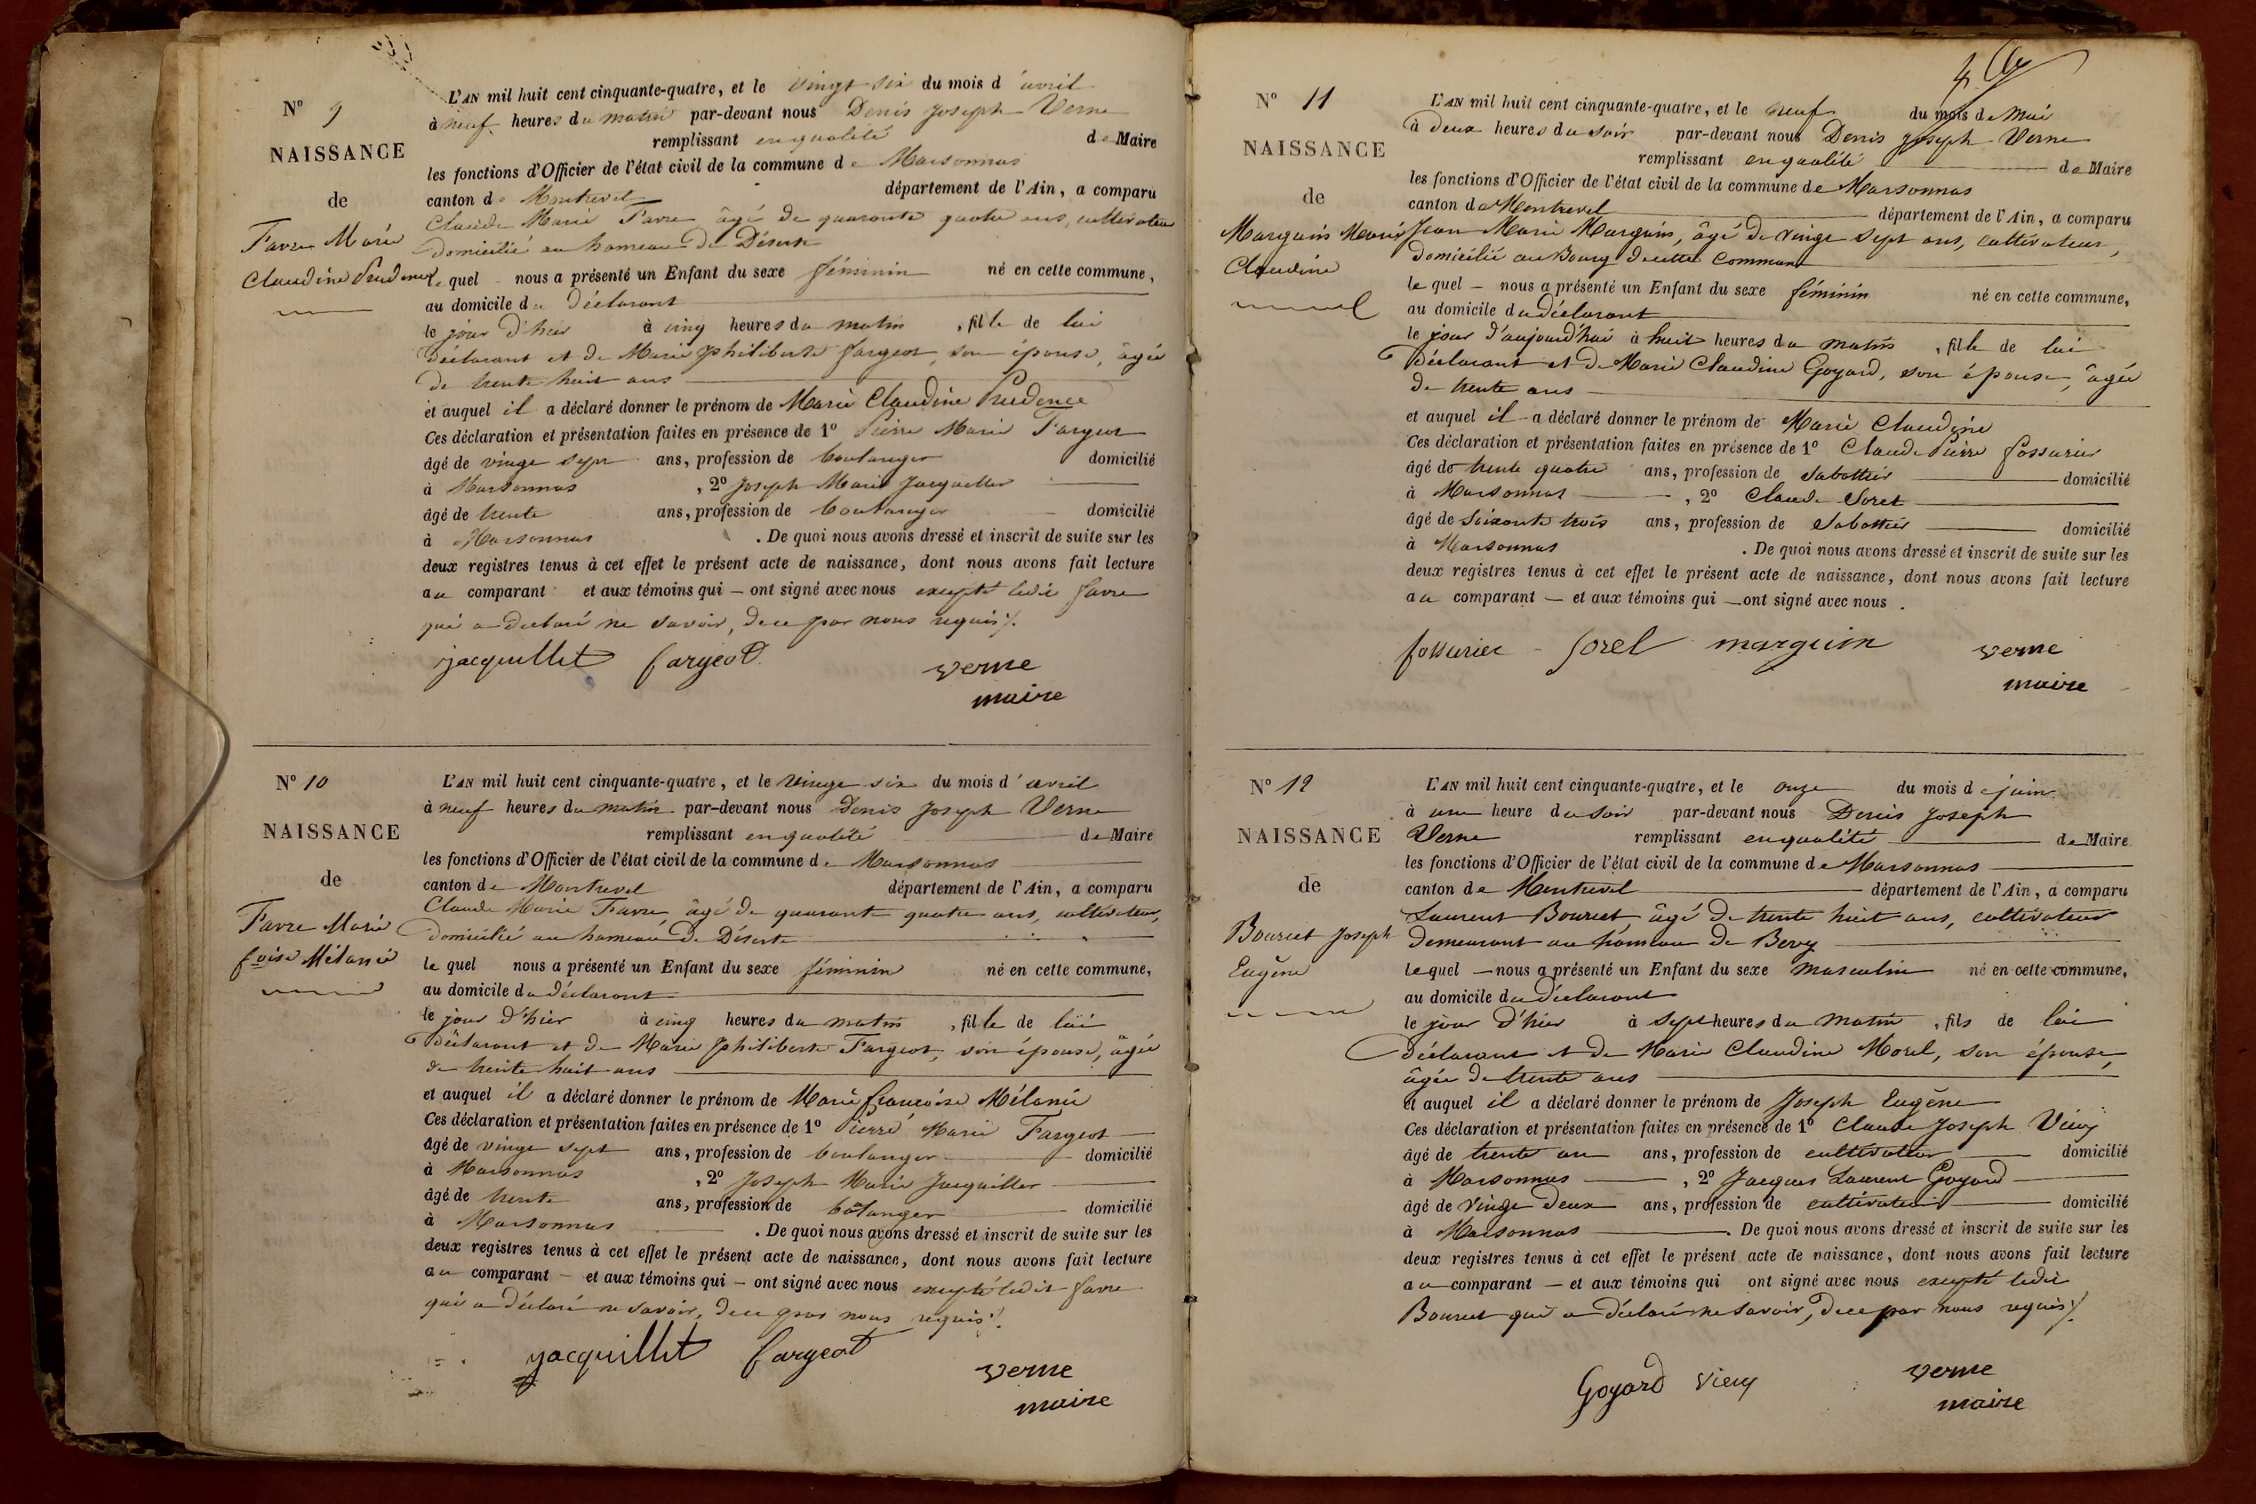 N° 9
NAISSANCE
de
Favre Marie
Claudine Prudence
L'AN mil huit cent cinquante-quatre, et le vingt six du mois d'avril
à neuf heures du matin par-devant nous Denis Joseph Verne
remplissant en qualité de Maire
les fonctions d'Officier de l'état civil de la commune de Marsonnas
canton de Montrevel département de l'Ain, a comparu
Claude Marie Favre âgé de quarante quatre ans, cultivateur
domicilié au hameau de Déserte
lequel nous a présenté un Enfant du sexe féminin né en cette commune,
au domicile du déclarant
le jour d'hier à cinq heures du matin, fille de lui
déclarant et de Marie Philiberte Fargeot, son épouse, âgée
de trente huit ans
et auquel il a déclaré donner le prénom de Marie Claudine Prudence
Ces déclaration et présentation faites en présence de 1° Pierre Marie Fargeot
âgé de vingt sept ans, profession de boulanger domicilié
à Marsonnas, 2° Joseph Marie Jacquillet
âgé de trente ans, profession de boulanger domicilié
à Marsonnas. De quoi nous avons dressé et inscrit de suite sur les
deux registres tenus à cet effet le présent acte de naissance, dont nous avons fait lecture
au comparant et aux témoins qui — ont signé avec nous excepté ledit favre
qui a déclaré ne savoir, de ce par nous requis ./.
jacquillet fargeot verne
maire
N° 10
NAISSANCE
de
Favre Marie
foise Mélanie
L'AN mil huit cent cinquante-quatre, et le vingt six du mois d'avril
à neuf heures du matin par-devant nous Denis Joseph Verne
remplissant en qualité de Maire
les fonctions d'Officier de l'état civil de la commune de Marsonnas
canton de Montrevel département de l'Ain, a comparu
Claude Marie Favre, âgé de quarante quatre ans, cultivateur,
domicilié au hameau de Déserte
lequel nous a présenté un Enfant du sexe féminin né en cette commune,
au domicile du déclarant
le jour d'hier à cinq heures du matin, fille de lui
déclarant et de Marie Philiberte Fargeot, son épouse, âgée
de trente huit ans
et auquel il a déclaré donner le prénom de Marie françoise Mélanie
Ces déclaration et présentation faites en présence de 1° Pierre Marie Fargeot
âgé de vingt sept ans, profession de boulanger domicilié
à Marsonnas, 2° Joseph Marie Jacquillet
âgé de trente ans, profession de bolanger domicilié
à Marsonnas. De quoi nous avons dressé et inscrit de suite sur les
deux registres tenus à cet effet le présent acte de naissance, dont nous avons fait lecture
au comparant — et aux témoins qui — ont signé avec nous excepté ledit favre
qui a déclaré ne savoir, de ce par nous requis ./.
jacquillet fargeot verne
maire
N° 11
NAISSANCE
de
Marguin Marie
Claudine
L'AN mil huit cent cinquante-quatre, et le neuf du mois de Mai
à deux heures du soir par-devant nous Denis Joseph Verne
remplissant en qualité de Maire
les fonctions d'Officier de l'état civil de la commune de Marsonnas
canton de Montrevel département de l'Ain, a comparu
Jean Marie Marguin, âgé de vingt sept ans, cultivateur,
domicilié au Bourg de cette Commune
lequel — nous a présenté un Enfant du sexe féminin né en cette commune,
au domicile du déclarant
le jour d'aujourd'hui à huit heures du matin, fille de lui
déclarant et de Marie Claudine Goyard, son épouse, âgée
de trente ans
et auquel il a déclaré donner le prénom de Marie Claudine
Ces déclaration et présentation faites en présence de 1° Claude Pierre fossurier
âgé de trente quatre ans, profession de sabottier domicilié
à Marsonnas, 2° Claude Sorel
âgé de soixante trois ans, profession de sabottier domicilié
à Marsonnas. De quoi nous avons dressé et inscrit de suite sur les
deux registres tenus à cet effet le présent acte de naissance, dont nous avons fait lecture
au comparant — et aux témoins qui — ont signé avec nous.
fossurier Sorel marguin verne
maire
N° 12
NAISSANCE
de
Bourcet Joseph
Eugène
L'AN mil huit cent cinquante-quatre, et le onze du mois de juin
à une heure du soir par-devant nous Denis Joseph
Verne remplissant en qualité de Maire
les fonctions d'Officier de l'état civil de la commune de Marsonnas
canton de Montrevel département de l'Ain, a comparu
Laurent Bourcet, âgé de trente huit ans, cultivateur
demeurant au hameau de Bevy
lequel — nous a présenté un Enfant du sexe masculin né en cette commune,
au domicile du déclarant
le jour d'hier à sept heures du matin, fils de lui
déclarant et de Marie Claudine Morel, son épouse,
âgée de trente ans
et auquel il a déclaré donner le prénom de Joseph Eugène
Ces déclaration et présentation faites en présence de 1° Claude Joseph Vieux
âgé de trente un ans, profession de cultivateur domicilié
à Marsonnas, 2° Jacques Laurent Goyard
âgé de vingt deux ans, profession de cultivateur domicilié
à Marsonnas. De quoi nous avons dressé et inscrit de suite sur les
deux registres tenus à cet effet le présent acte de naissance, dont nous avons fait lecture
au comparant — et aux témoins qui ont signé avec nous excepté ledit
Bourcet qui a déclaré ne savoir, de ce par nous requis ./.
Goyard vieux verne
maire